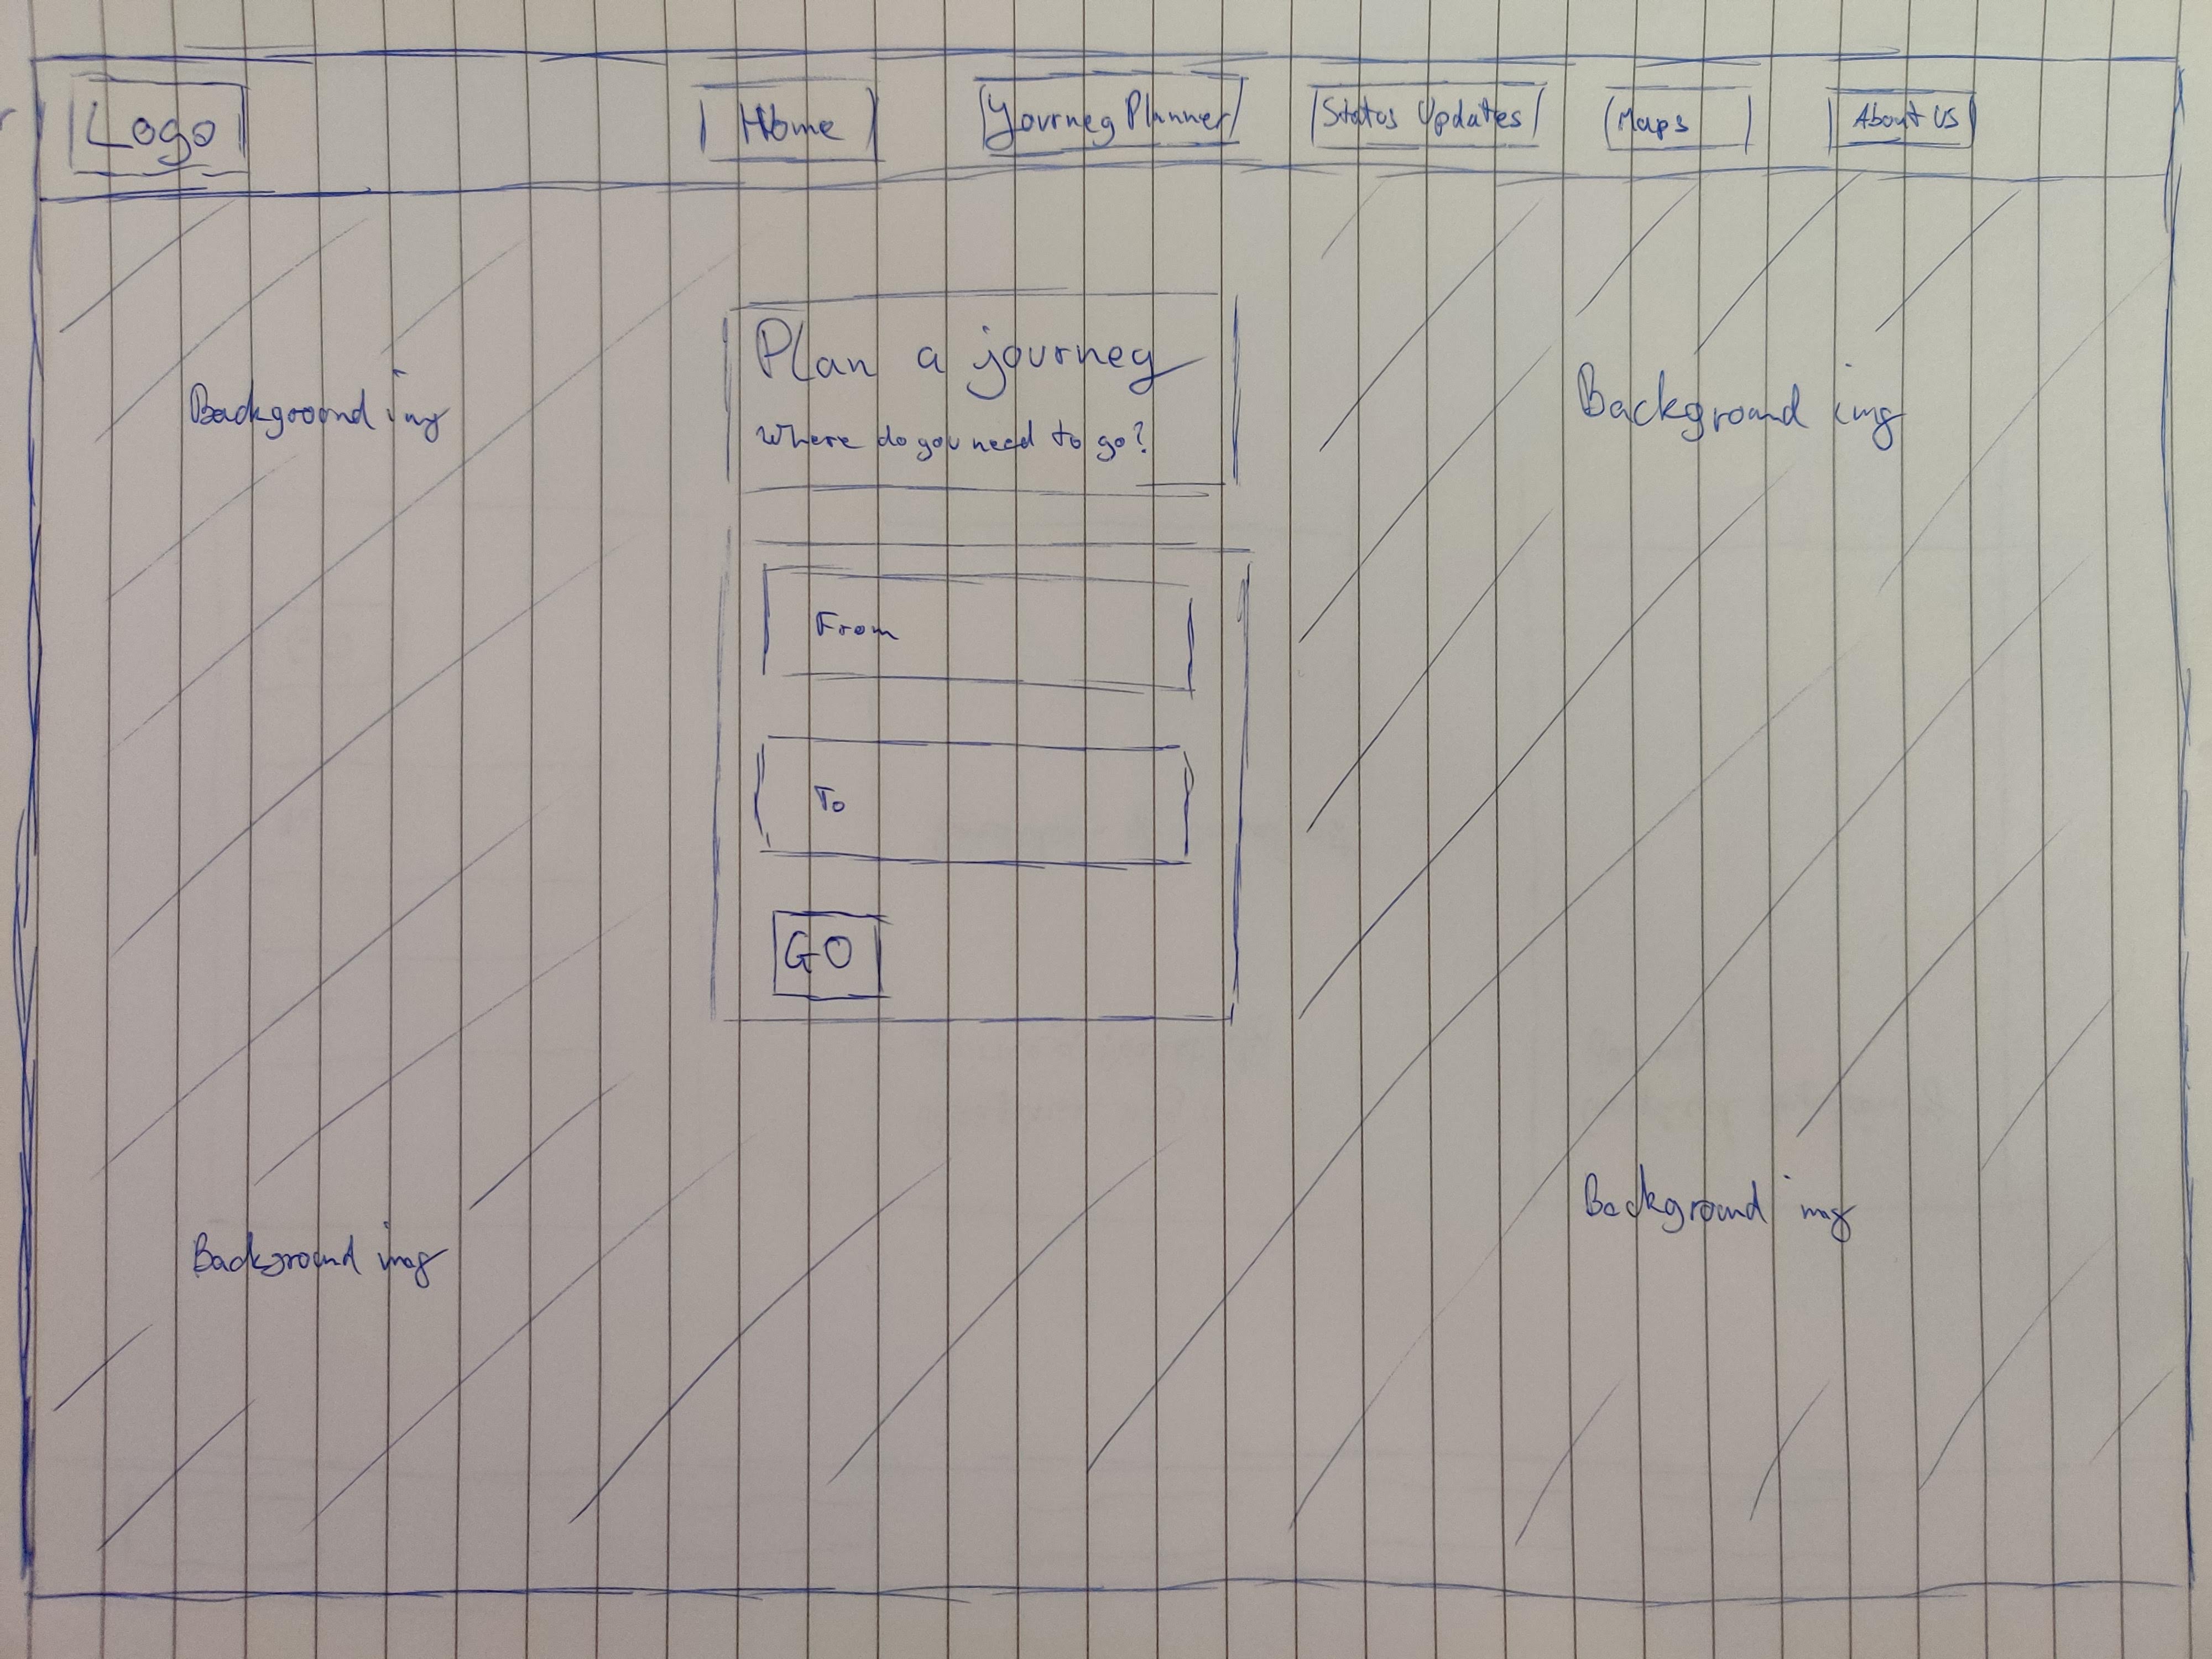 Logo
Home
Journey Planner
Status Updates
Maps
About US
Plan a journey
Where do you need to go?
Background img
Background img
From
To
GO
Background img
Background img